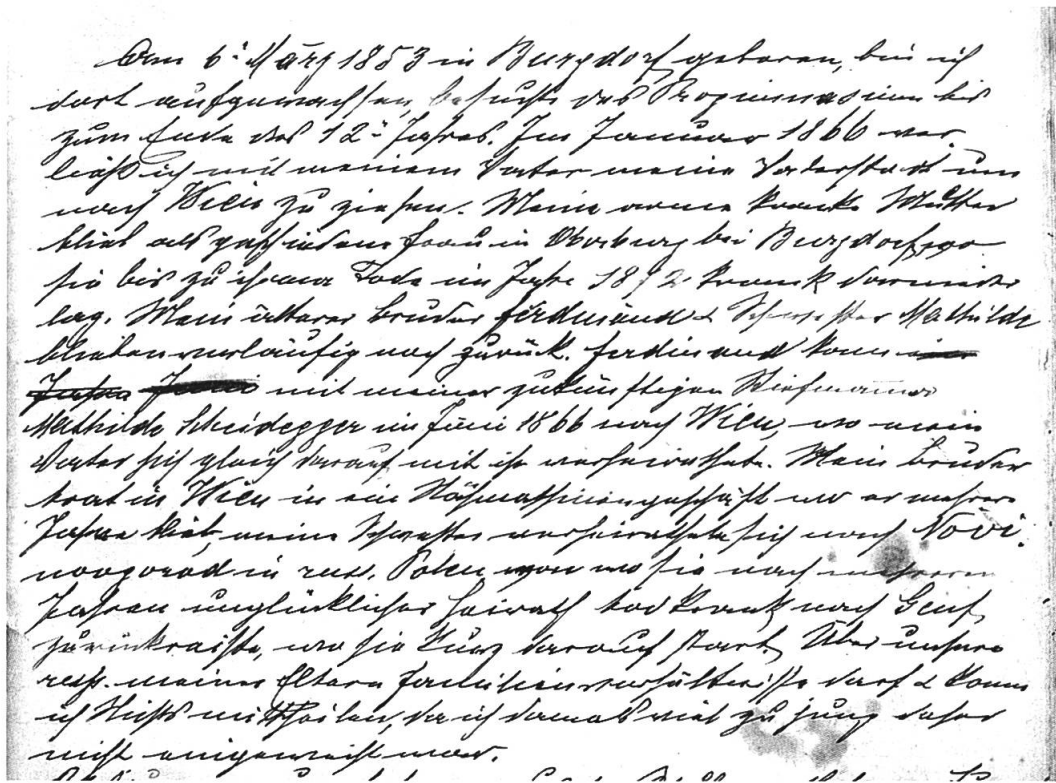 Am 6. März 1853 in Burgdorf geboren, bin ich
dort aufgewachsen, besuchte das Progimnasium bis
zum Ende des 12. Jahres. Im Januar 1866 ver
ließ ich mit meinem Vater meine Vaterstadt um
nach Wien zu ziehen. Meine arme kranke Mutter
blieb als geschiedene Frau in Oberburg bei Burgdorf, wo
sie bis zu ihrem Tode im Jahre 1892 krank darnieder
lag. Mein älterer Bruder Ferdinand & Schwester Mathilde
blieben vorläufig noch zurück. Ferdinand kam im
Jahre Juni mit meiner zukünftigen Stiefmama
Mathilde Scheidegger im Juni 1866 nach Wien, wo mein
Vater sich gleich darauf mit ihr verheirathete. Mein Bruder
trat in Wien in ein Nähmaschinengeschäft wo er mehrere
Jahre blieb, meine Schwester verheirathete sich nach Novi.
novgorod in russ. Polen von wo sie nach mehreren
Jahren unglücklicher Heirath tod krank nach Genf
zurückreiste, wo sie kurz darauf starb. Über unsere
resp. meiner Eltern Familienverhältnisse darf & kann
ich Nichts mittheilen, da ich damals viel zu jung daher
nicht eingeweiht war.